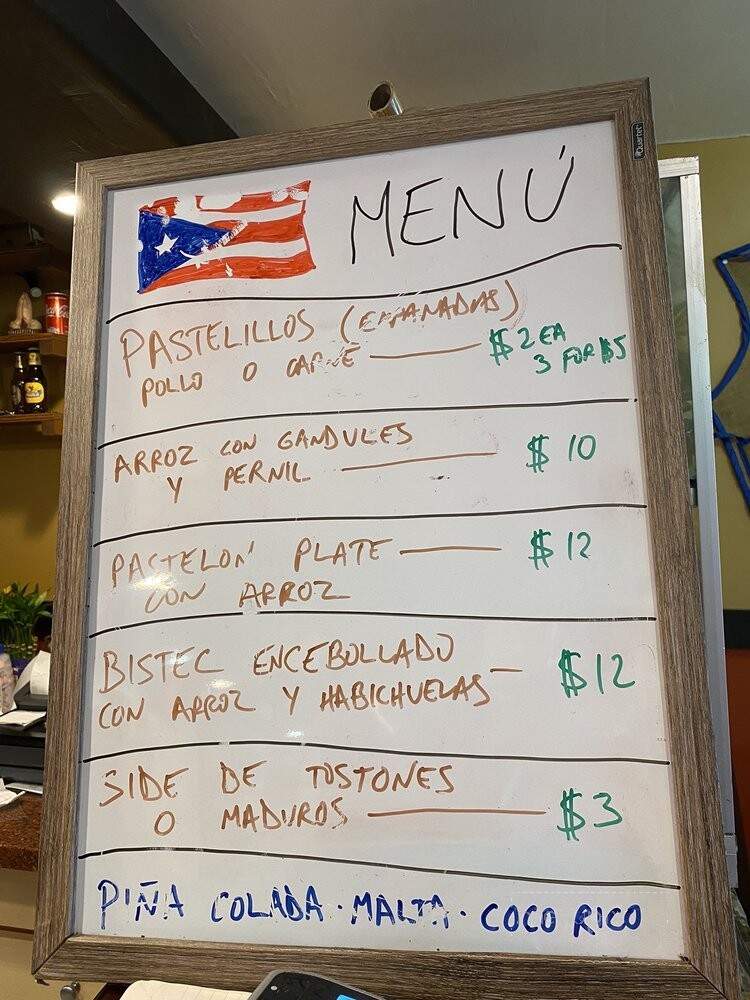 Quartet
MENÚ
PASTELILLOS (EMPANADAS)
POLLO O CARNE — $2 EA
3 FOR $5
ARROZ CON GANDULES
Y PERNIL — $10
PASTELON PLATE — $12
CON ARROZ
BISTEC ENCEBOLLADO — $12
CON ARROZ Y HABICHUELAS
SIDE DE TOSTONES
O MADUROS — $3
PIÑA COLADA · MALTA · COCO RICO